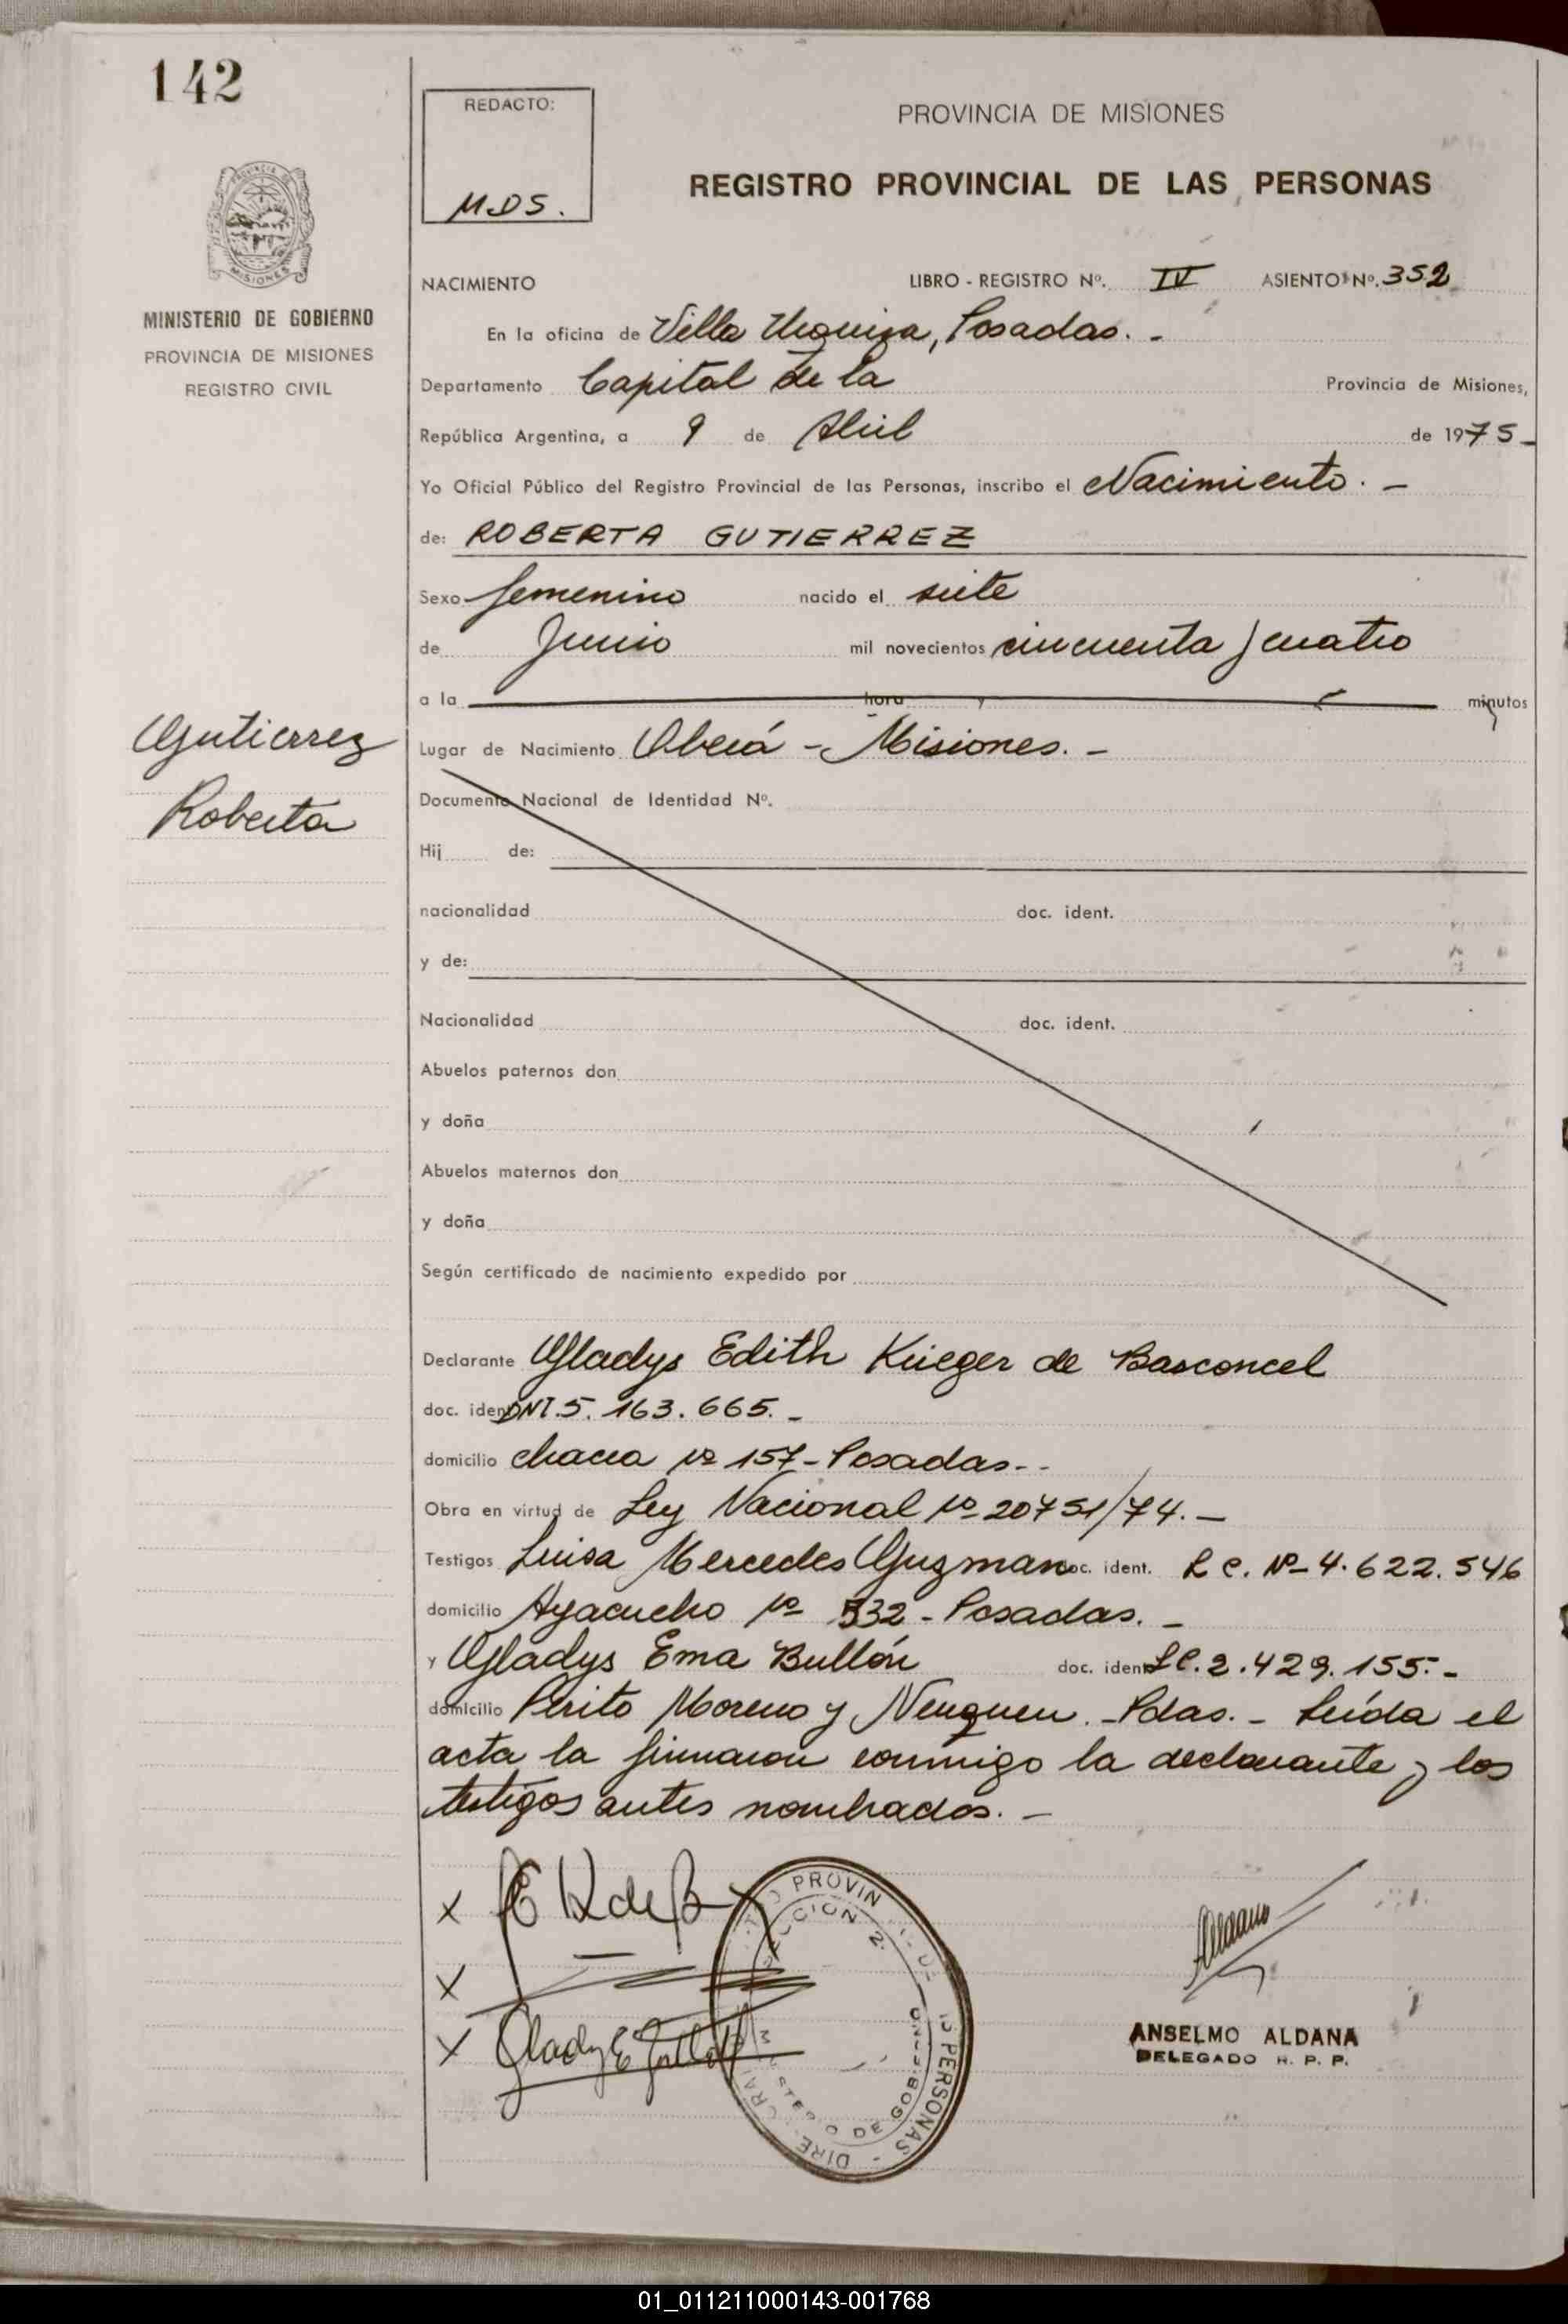 142
REDACTO:
M.D.S.
PROVINCIA DE MISIONES
REGISTRO PROVINCIAL DE LAS PERSONAS
MISIONES
MINISTERIO DE GOBIERNO
PROVINCIA DE MISIONES
REGISTRO CIVIL
NACIMIENTO LIBRO - REGISTRO Nº. IV ASIENTO Nº. 352
En la oficina de Villa Urquiza, Posadas. -
Departamento Capital de la Provincia de Misiones,
República Argentina, a 9 de Abril de 1975 -
Yo Oficial Público del Registro Provincial de las Personas, inscribo el Nacimiento. -
de: ROBERTA GUTIERREZ
Sexo femenino nacido el siete
de Junio mil novecientos cincuenta y cuatro
a la hora y minutos
Gutierrez
Roberta
Lugar de Nacimiento Oberá - Misiones. -
Documento Nacional de Identidad Nº.
Hij de:
nacionalidad doc. ident.
y de:
Nacionalidad doc. ident.
Abuelos paternos don
y doña
Abuelos maternos don
y doña
Según certificado de nacimiento expedido por
Declarante Gladys Edith Krieger de Basconcel
doc. ident. DNI. 5.163.665. -
domicilio chacra nº 157 - Posadas. -
Obra en virtud de Ley Nacional nº 20751/74. -
Testigos Luisa Mercedes Guzman doc. ident. L C. Nº 4.622.546
domicilio Ayacucho nº 532 - Posadas. -
y Gladys Ema Bullón doc. ident. LC. 2.429.155. -
domicilio Perito Moreno y Neuquen. - Pdas. - Leída el
acta la firmaron conmigo la declarante y los
testigos antes nombrados. -
X
X
X
ANSELMO ALDANA
DELEGADO R. P. P.
01_011211000143-001768